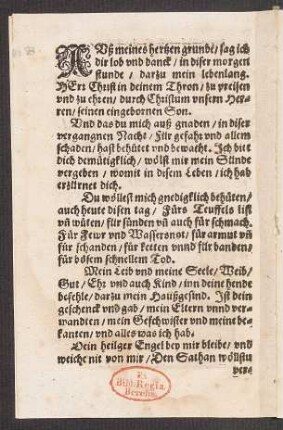 AUß meines hertzen grunde/ sag ich
dir lob vnd danck/ in diser morgen
stunde/ darzu mein lebenlang.
HErr Christ in deinem Thron/ zu preisen
vnd zu ehren/ durch Christum vnsern Her-
ren/ seinen eingebornen Son.
Vnd das du mich auß gnaden/ in diser
vergangnen Nacht/ Für gefahr vnd allem
schaden/ hast behütet vnd bewacht. Ich bitt
dich demütigklich/ wölst mir mein Sünde
vergeben/ womit in disem Leben/ ich hab
erzürnet dich.
Du wöllest mich gnedigklich behüten/
auch heute disen tag/ Fürs Teuffels list
vñ wüten/ für sünden vñ auch für schmach.
Für Fewr vnd Wassersnot/ für armut vñ
für schanden/ für ketten vnnd für banden/
für bösem schnellem Tod.
Mein Leib vnd meine Seele/ Weib/
Gut/ Ehr vnd auch Kind/ inn deine hende
befehle/ darzu mein Haußgesind. Ist dein
geschenck vnd gab/ mein Eltern vnnd ver-
wandten/ mein Geschwister vnd meine be-
kanten/ vnd alles was ich hab.
Dein heilger Engel bey mir bleibe/ vnd
weiche nit von mir/ Den Sathan wöllstu
ver-
Ex
Bibl. Regia
Berolin.